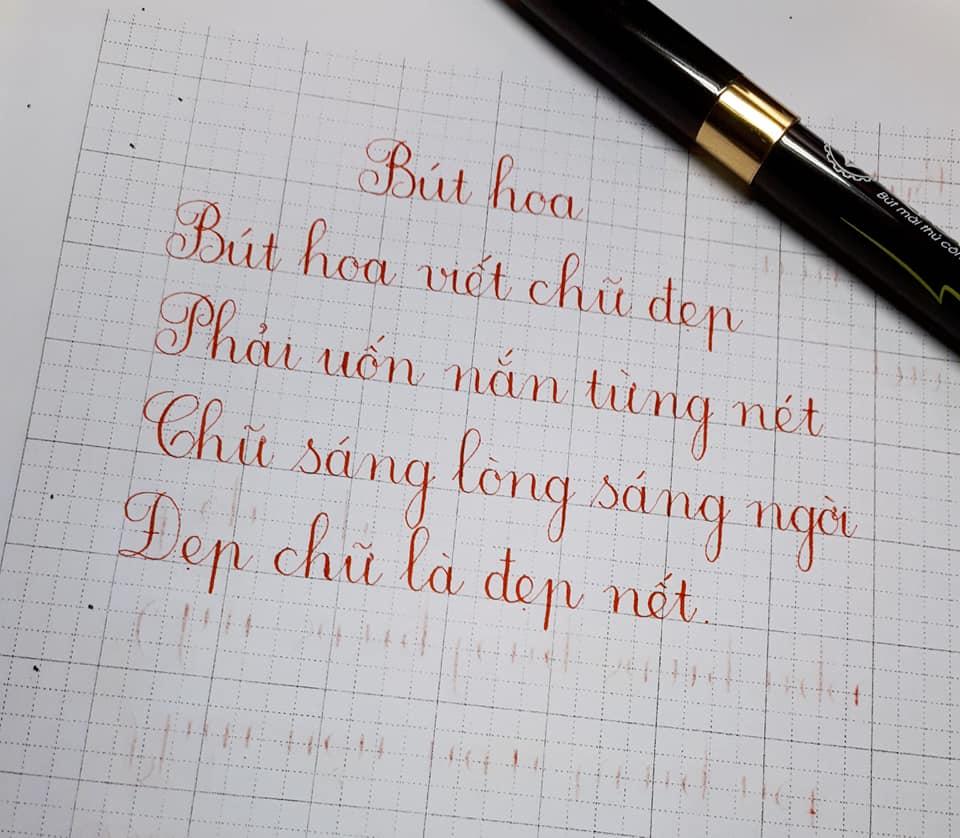 Bút hoa
Bút hoa viết chữ đẹp
Phải uốn nắn từng nét
Chữ sáng lòng sáng ngời
Đẹp chữ là đẹp nết.
Bút mài thủ